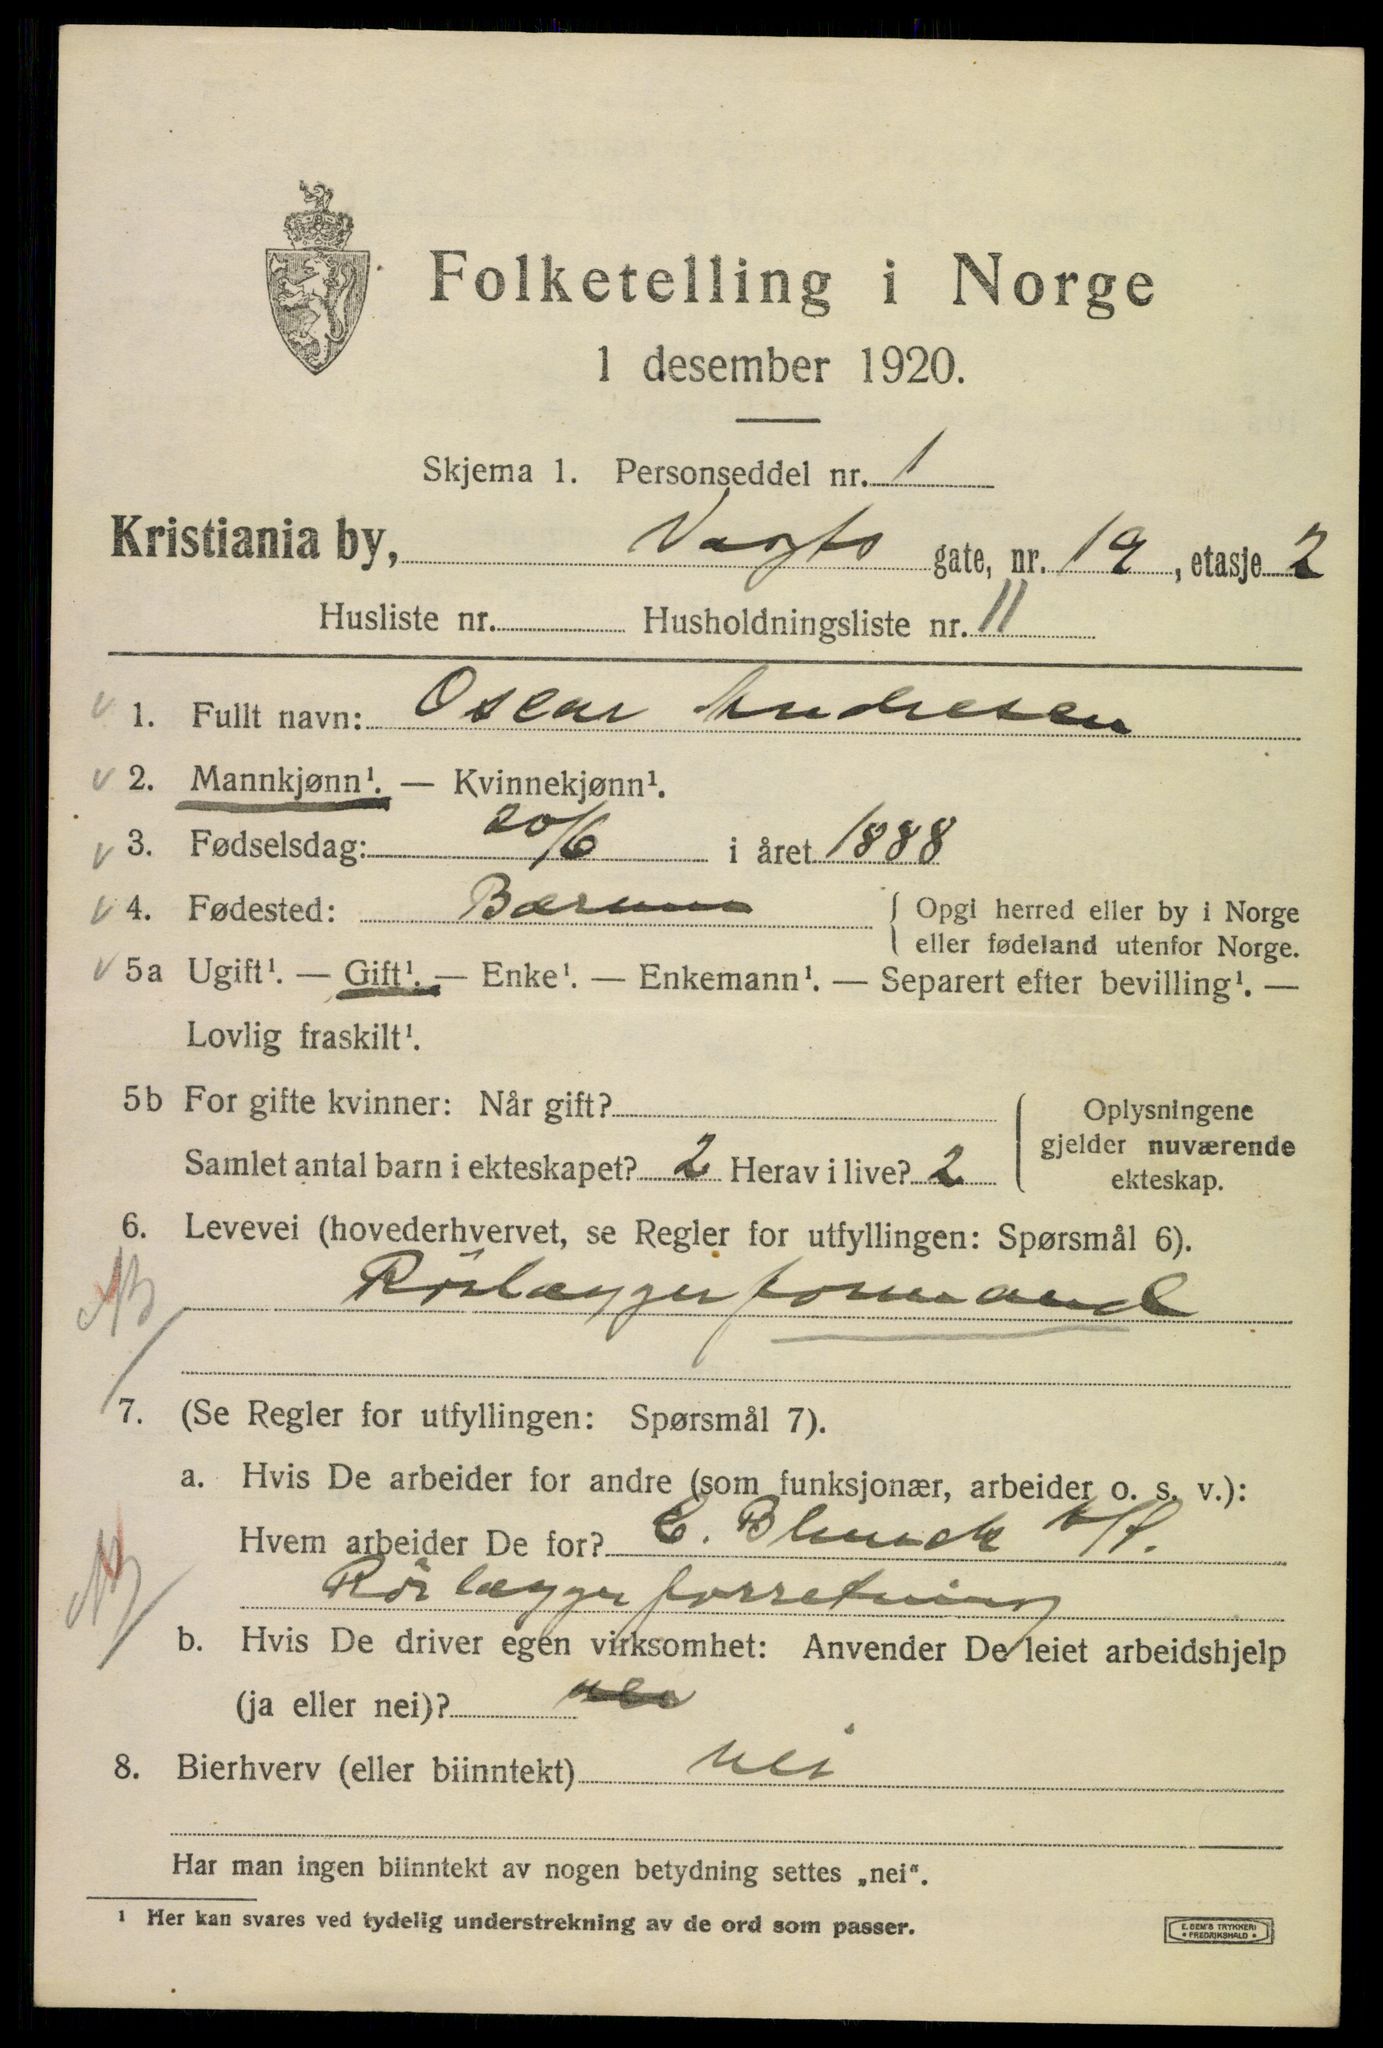 Folketelling i Norge
1 desember 1920.
Skjema 1. Personseddel nr. 1
Kristiania by, Vogts gate, nr. 19, etasje 2
Husliste nr. Husholdningsliste nr. 11
1. Fullt navn: Oscar Andresen
2. Mannkjønn¹. — Kvinnekjønn¹.
3. Fødselsdag: 20/6 i året 1888
4. Fødested: Bærum { Opgi herred eller by i Norge
eller fødeland utenfor Norge.
5a Ugift¹. — Gift¹. — Enke¹. — Enkemann¹. — Separert efter bevilling¹. —
Lovlig fraskilt¹.
5b For gifte kvinner: Når gift?
Samlet antal barn i ekteskapet? 2 Herav i live? 2
Oplysningene
gjelder nuværende
ekteskap.
6. Levevei (hovederhvervet, se Regler for utfyllingen: Spørsmål 6).
Rörlægger formand
7. (Se Regler for utfyllingen: Spørsmål 7).
a. Hvis De arbeider for andre (som funksjonær, arbeider o. s. v.):
Hvem arbeider De for? E. Blunck
Rörlægger forretning
b. Hvis De driver egen virksomhet: Anvender De leiet arbeidshjelp
(ja eller nei)?
8. Bierhverv (eller biinntekt) nei
Har man ingen biinntekt av nogen betydning settes „nei“.
¹ Her kan svares ved tydelig understrekning av de ord som passer.
E. SEM'S TRYKKERI
• FREDRIKSHALD •